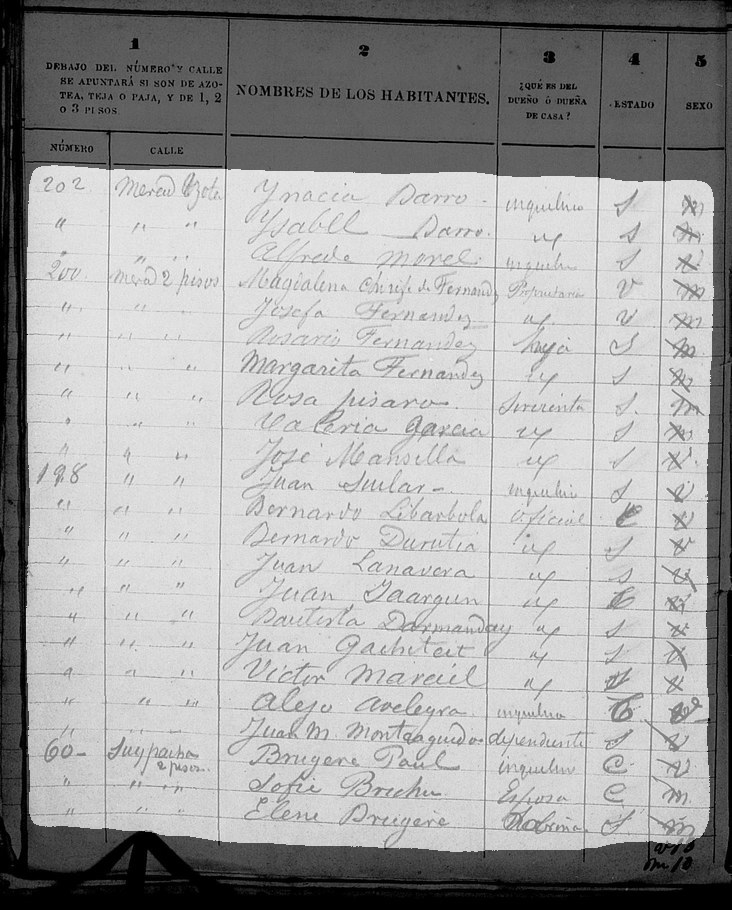 1 2 3 4 5
DEBAJO DEL NÚMERO Y CALLE
SE APUNTARÁ SI SON DE AZO-
TEA, TEJA O PAJA, Y DE 1, 2
O 3 PISOS
NOMBRES DE LOS HABITANTES.
¿QUÉ ES DEL
DUEÑO Ó DUEÑA
DE CASA?
ESTADO
SEXO
NÚMERO CALLE
202. Ynacia Darro - inquilino S m
" " " Ysabell Darro. " S m
" " " Alfredo Morel. inquilin S V
200. merad 2 pisos Magdalena de Fernandz Propietaria V m
" " " Josefa Fernandez " V m
" " " Rosario Fernandez hija S m
" " " Margarita Fernandez " S m
" " " Rosa pisaro. Sirvienta S. m
" " " Valeria Garcia " S m
" " " José Mansilla " S V
198 " " Juan - inquilin S V
" " " Bernardo Libarbola oficial C V
" " " Bernardo Durutia " S V
" " " Juan Lanavera " S V
" " " Juan " C V
" " " Bautista Darmanday " S V
" " " Juan Gachiteit " S V
" " " Victor Marciel " S V
" " " Alejo Aveleyra. inquilino C V
" " " Juan M. dependiente S V
60 - Suypacha Brugere Paul inquilin C V
2 pisos.
" " " Sofie Esposa C m.
" " " Elene Brugere Sobrina S. m
v 10
m 10